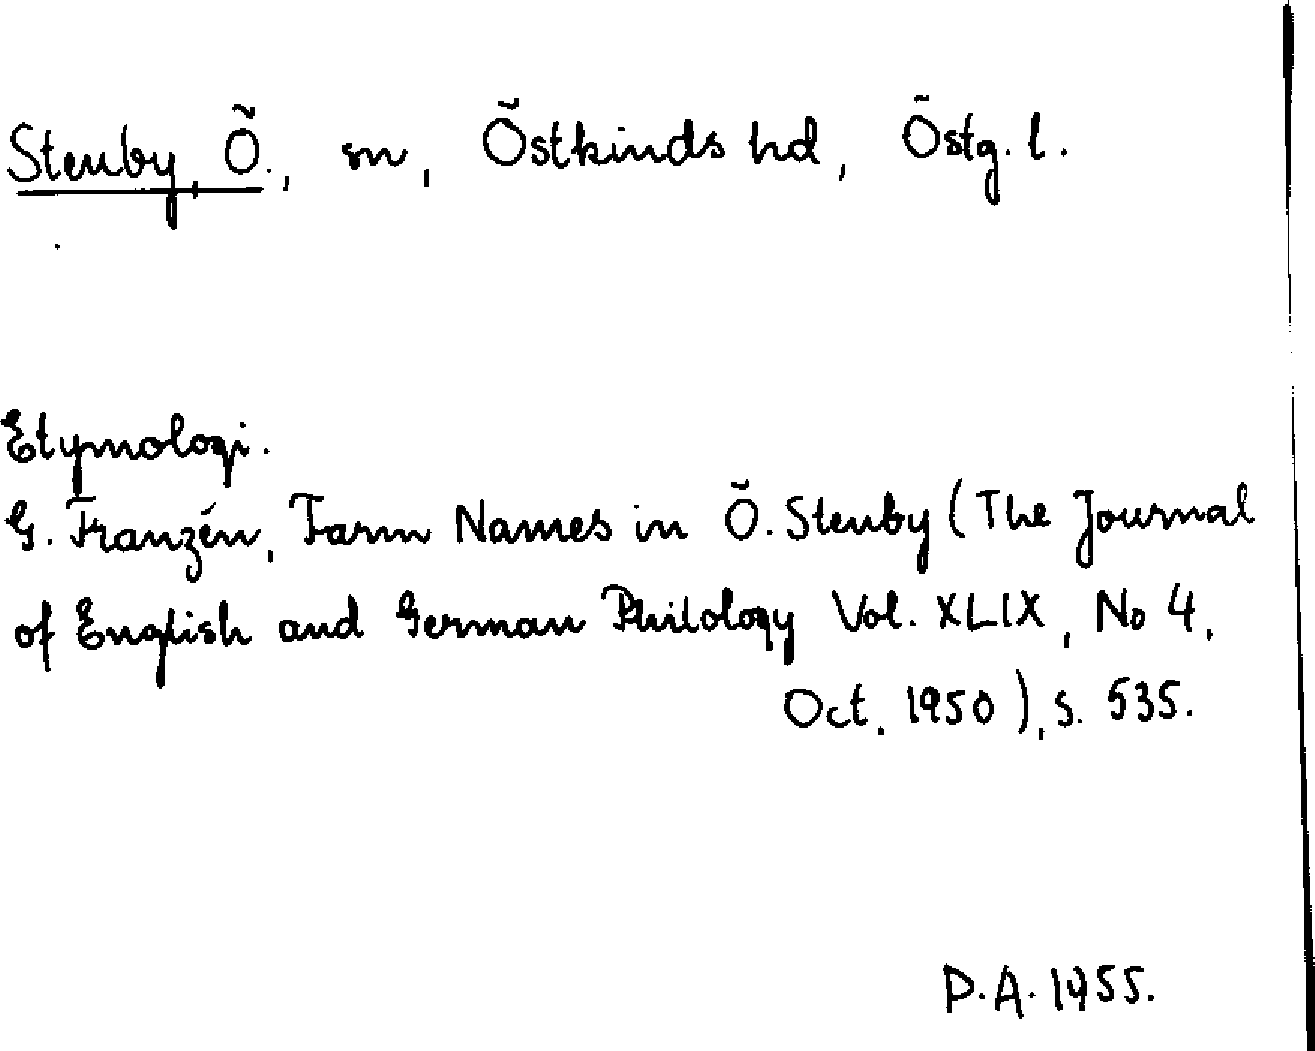 Stenby, Ö., sn, Östkinds hd, Östg. l.
Etymologi.
G. Franzén, Farm Names in Ö. Stenby (The Journal
of English and German Philology Vol. XLIX, No 4,
Oct. 1950), s. 535.
P.A. 1955.